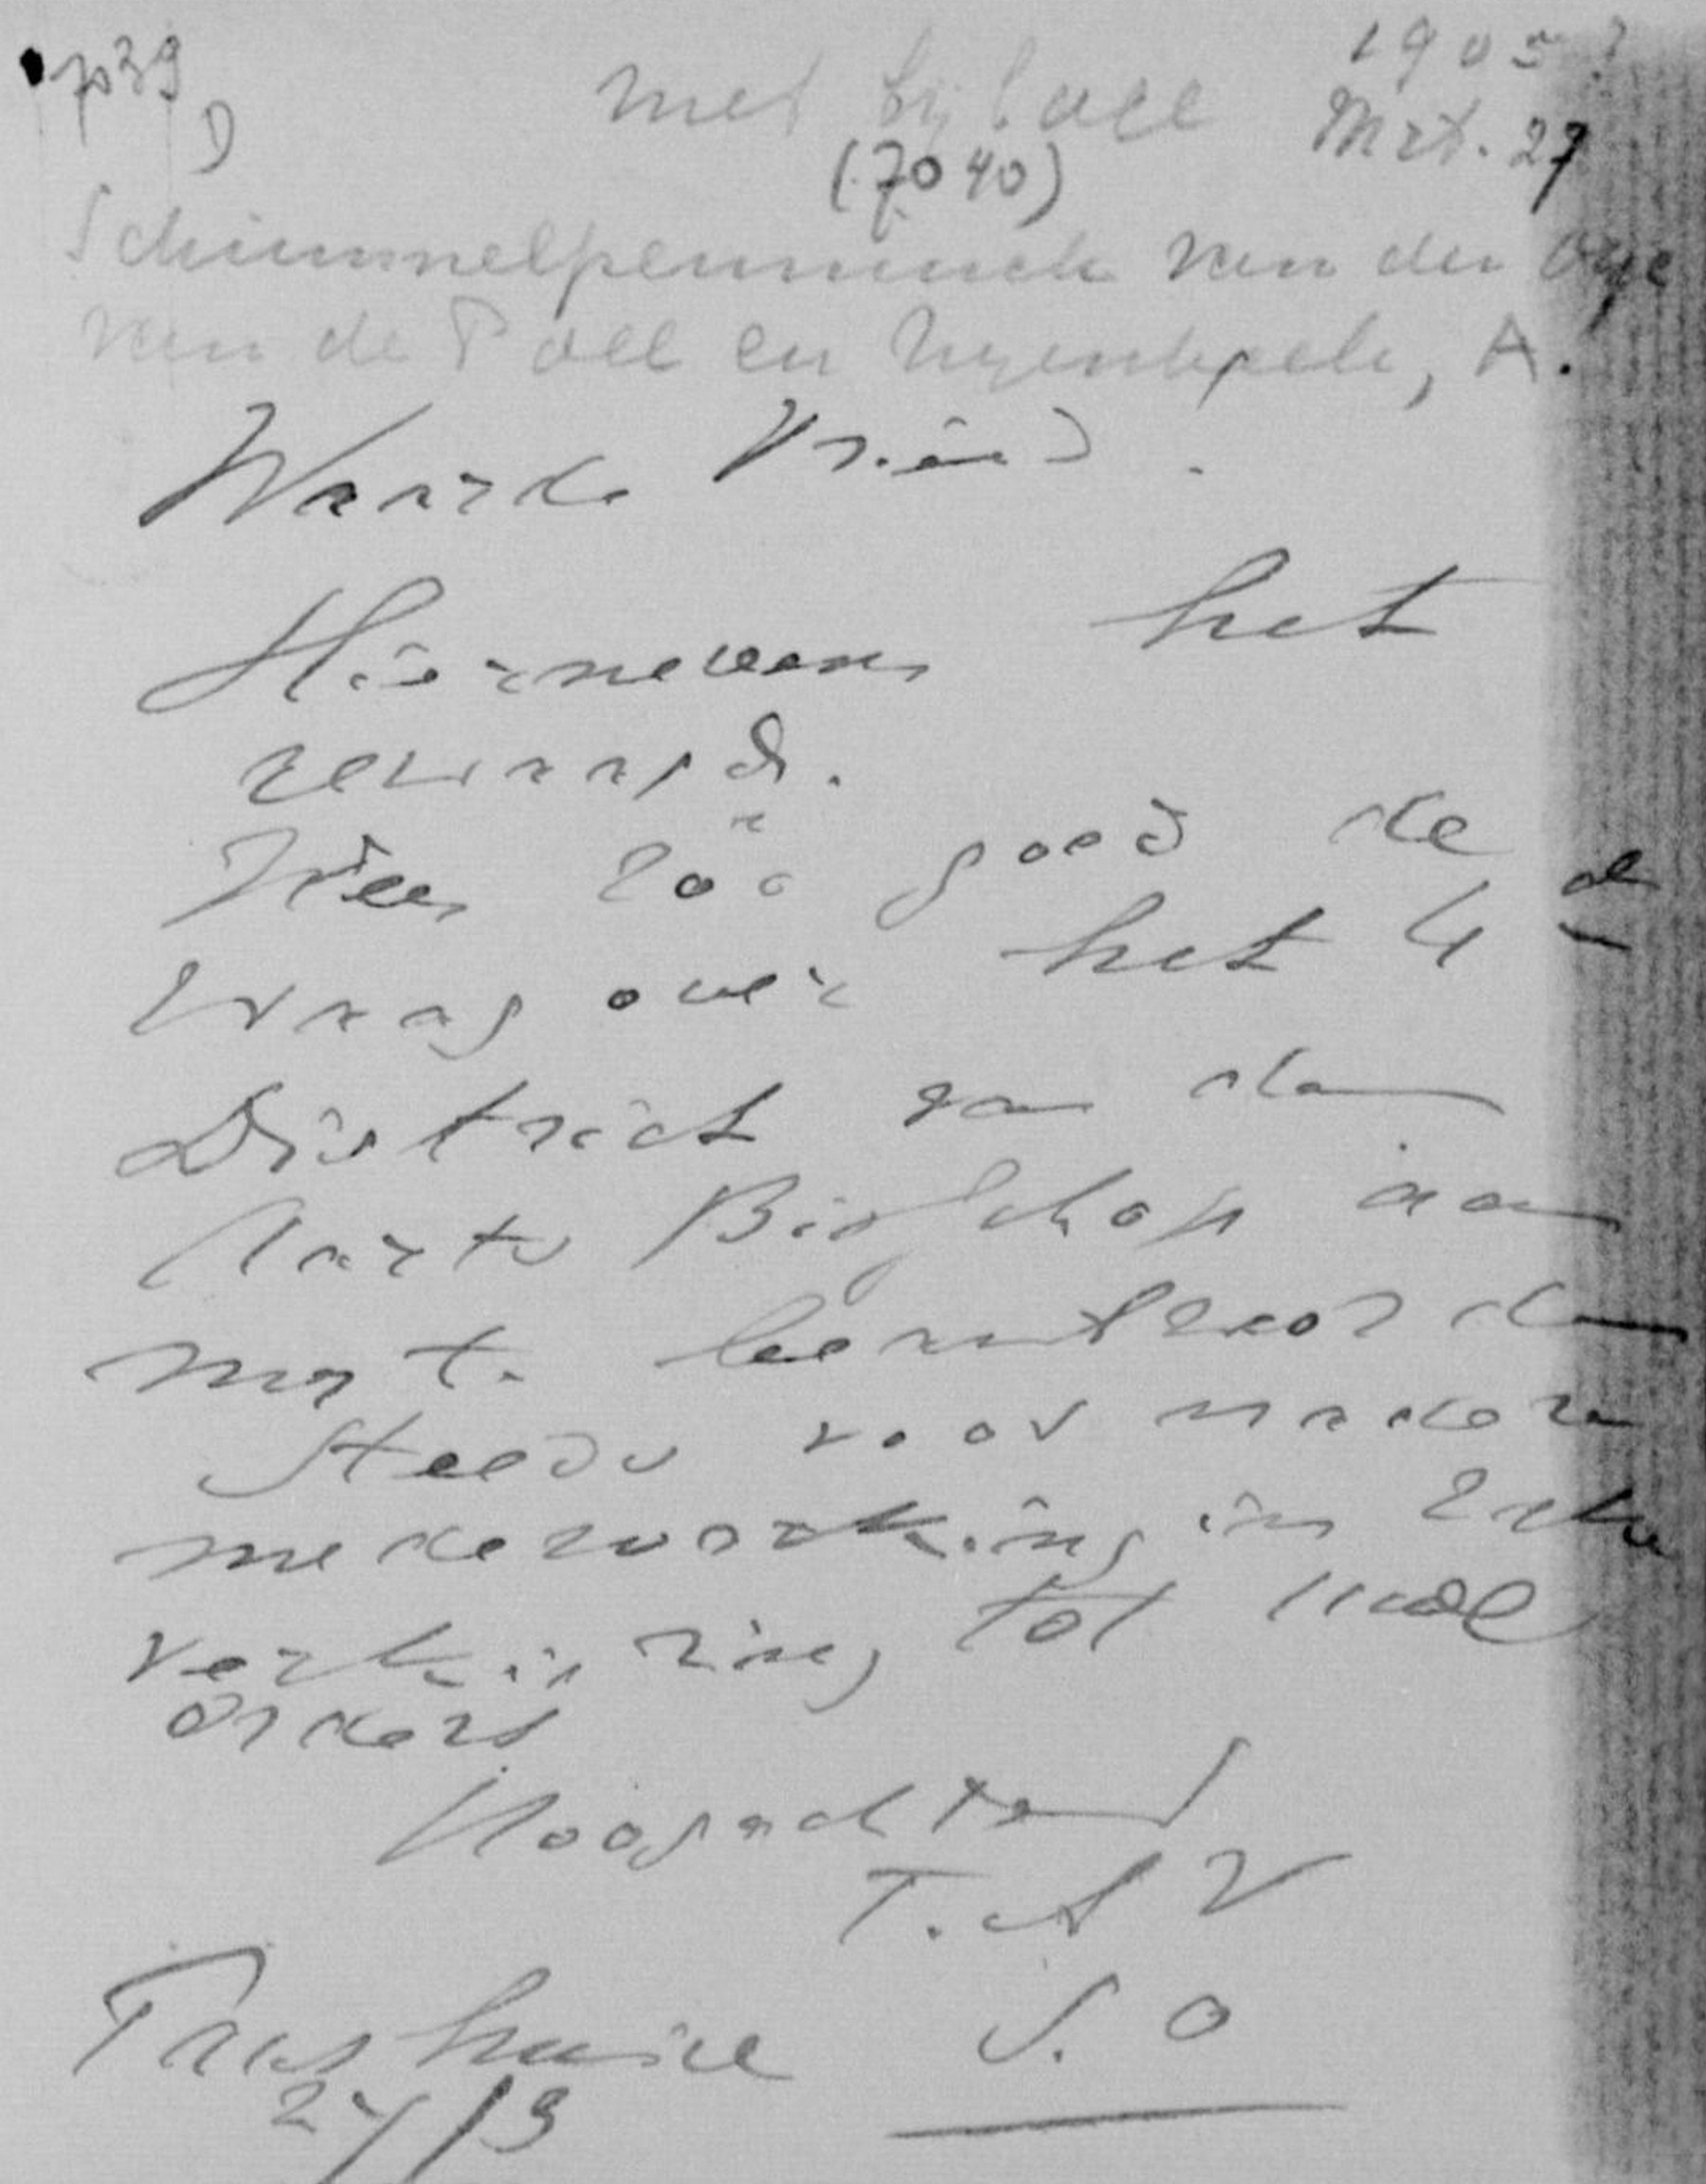 p39
D
met bijl all
1905?
Mrt. 27
(7040)
Schimmelpenninck van der Oye
van de Poll en Nyenbeek, A.
Waarde Vriend.
Hiernevens het
gevraagde.
Wees zoo goed de
vraag over het 4de
District van den
Aarts Bisschop aan
mij te beantwoorden
Steeds voor nadere
medewerking in zake
verkiezing tot uwe
orders
Hoogachtend
T.A.V
S. O
27/3